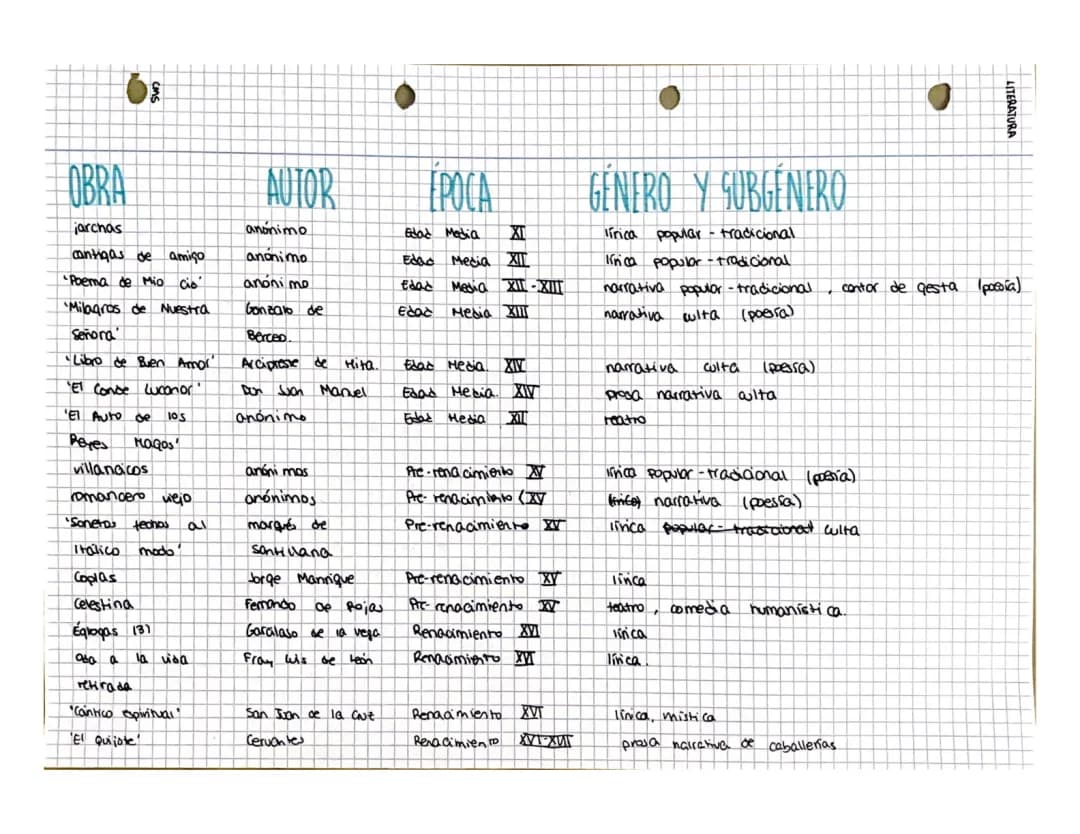 GMS
LITERATURA
OBRA AUTOR ÉPOCA GÉNERO Y SUBGÉNERO
jarchas anónimo Edad Media XI lírica popular - tradicional
cantigas de amigo anónimo Edad Media XII lírica popular - tradicional
'Poema de Mio Cid' anónimo Edad Media XII - XIII narrativa popular - tradicional, cantar de gesta (poesía)
'Milagros de Nuestra Gonzalo de Edad Media XIII narrativa culta (poesía)
Señora' Berceo.
'Libro de Buen Amor' Arcipreste de Hita. Edad Media XIV narrativa culta (poesía)
'El Conde Lucanor' Don Juan Manuel Edad Media. XIV prosa narrativa culta
'El Auto de los anónimo Edad Media XII teatro
Reyes Magos'
villancicos anónimos Pre-renacimiento XV lírica popular - tradicional (poesía)
romancero viejo anónimos Pre-renacimiento (XV lírica narrativa (poesía)
'Sonetos fechos al marqués de Pre-renacimiento XV lírica popular - tradicional culta
Itálico modo' Santillana
Coplas Jorge Manrique Pre-renacimiento XV lírica
Celestina Fernando de Rojas Pre-renacimiento XV teatro, comedia humanística.
Églogas (3) Garcilaso de la Vega Renacimiento XVI lírica
Oda a la vida Fray Luis de León Renacimiento XVI lírica.
retirada
"Cántico espiritual" San Juan de la Cruz Renacimiento XVI lírica, mística
'El Quijote' Cervantes Renacimiento XVI-XVII prosa narrativa de caballerías